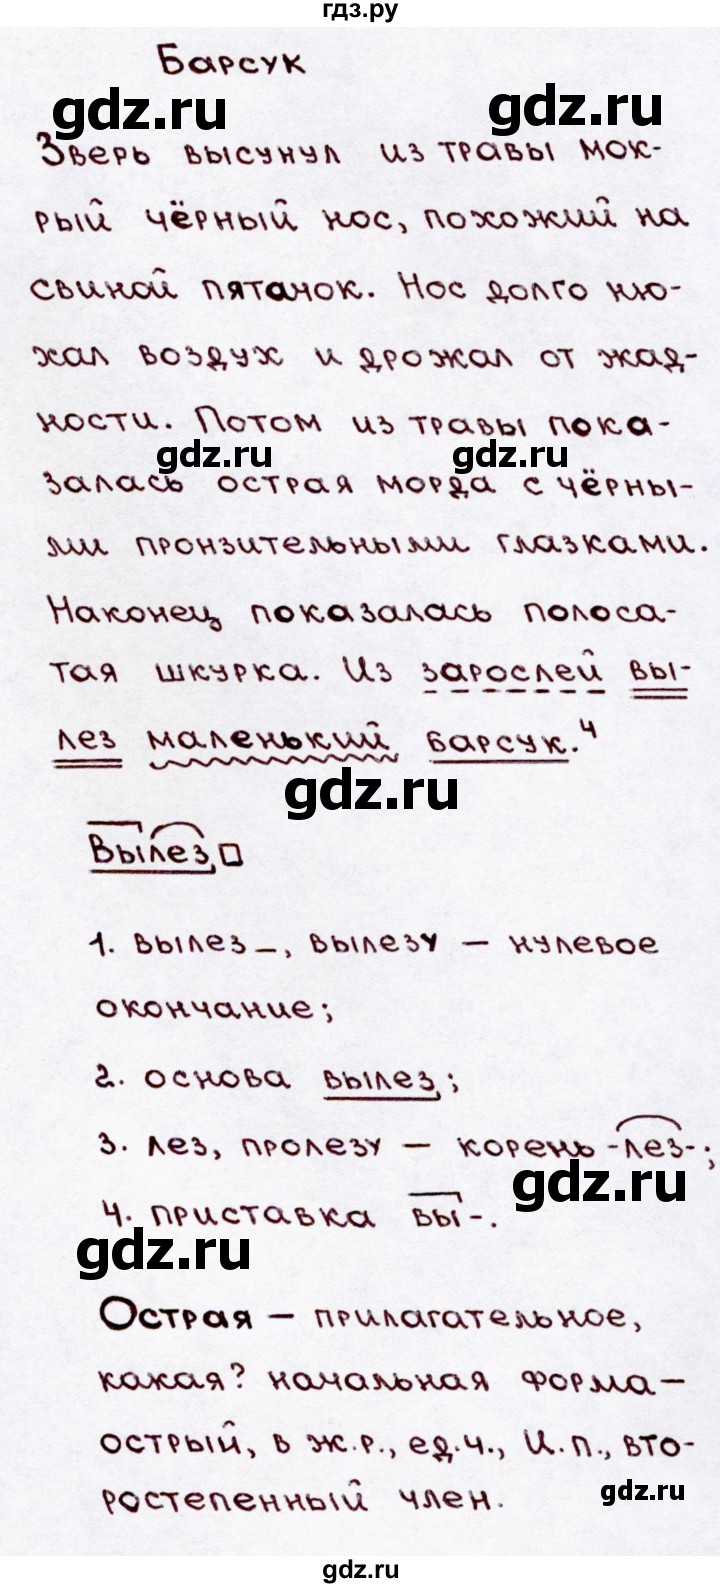 гдз.ру
Барсук
gdz.ru gdz.ru
Зверь высунул из травы мок-
рый чёрный нос, похожий на
свиной пятачок. Нос долго ню-
хал воздух и дрожал от жад-
ности. Потом из травы пока-
gdz.ru gdz.ru
залась острая морда с чёрны-
ми пронзительными глазками.
Наконец показалась полоса-
тая шкурка. Из зарослей вы-
лез маленький барсук.⁴
gdz.ru
Вылез
1. вылез_, вылезу — нулевое
окончание;
2. основа вылез;
3. лез, пролезу — корень -лез-;
gdz.ru
4. приставка вы-.
gdz.ru
Острая — прилагательное,
какая? начальная форма —
острый, в ж.р., ед.ч., И.п., вто-
ростепенный член.
gdz.ru
gdz.ru